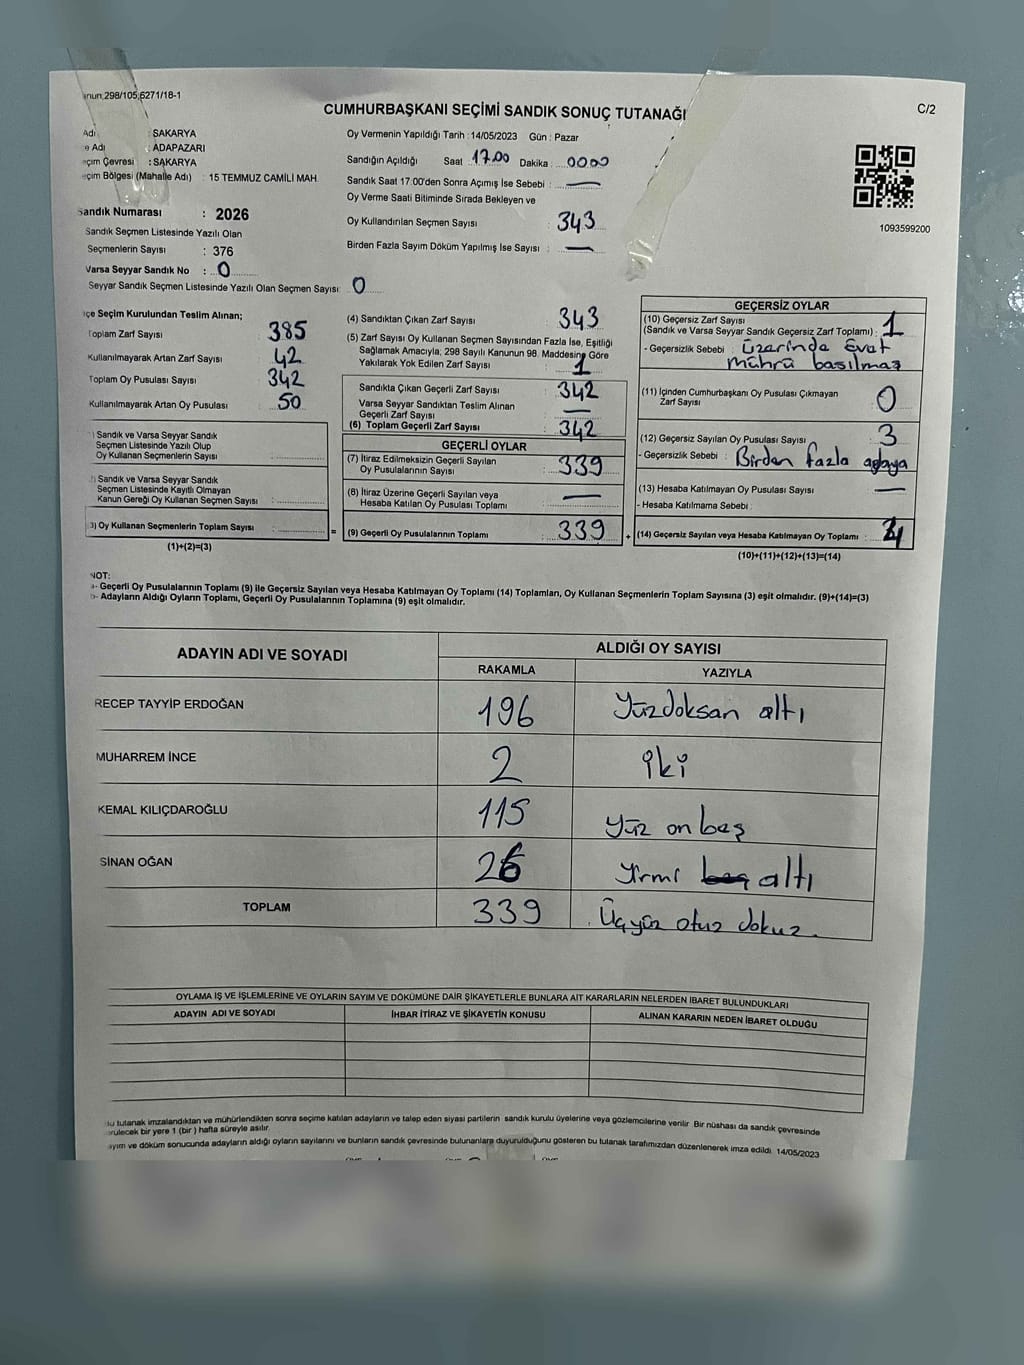 anun;298/105;6271/18-1
CUMHURBAŞKANI SEÇİMİ SANDIK SONUÇ TUTANAĞI
C/2
Adı : SAKARYA
e Adı : ADAPAZARI
eçim Çevresi : SAKARYA
eçim Bölgesi (Mahalle Adı) : 15 TEMMUZ CAMİLİ MAH.
Sandık Numarası : 2026
Sandık Seçmen Listesinde Yazılı Olan
Seçmenlerin Sayısı : 376
Varsa Seyyar Sandık No : 0
Seyyar Sandık Seçmen Listesinde Yazılı Olan Seçmen Sayısı: 0
Oy Vermenin Yapıldığı Tarih : 14/05/2023 Gün : Pazar
Sandığın Açıldığı Saat 17.00 Dakika : 0000
Sandık Saat 17:00'den Sonra Açımış İse Sebebi : —
Oy Verme Saati Bitiminde Sırada Bekleyen ve
Oy Kullandırılan Seçmen Sayısı : 343
Birden Fazla Sayım Döküm Yapılmış İse Sayısı : —
1093599200
lçe Seçim Kurulundan Teslim Alınan;
Toplam Zarf Sayısı 385
Kullanılmayarak Artan Zarf Sayısı : 42
Toplam Oy Pusulası Sayısı : 342
Kullanılmayarak Artan Oy Pusulası : 50
) Sandık ve Varsa Seyyar Sandık
Seçmen Listesinde Yazılı Olup
Oy Kullanan Seçmenlerin Sayısı :
) Sandık ve Varsa Seyyar Sandık
Seçmen Listesinde Kayıtlı Olmayan
Kanun Gereği Oy Kullanan Seçmen Sayısı :
3) Oy Kullanan Seçmenlerin Toplam Sayısı : =
(1)+(2)=(3)
(4) Sandıktan Çıkan Zarf Sayısı : 343
(5) Zarf Sayısı Oy Kullanan Seçmen Sayısından Fazla İse, Eşitliği
Sağlamak Amacıyla; 298 Sayılı Kanunun 98. Maddesine Göre
Yakılarak Yok Edilen Zarf Sayısı : 1
Sandıkta Çıkan Geçerli Zarf Sayısı : 342
Varsa Seyyar Sandıktan Teslim Alınan
Geçerli Zarf Sayısı : —
(6) Toplam Geçerli Zarf Sayısı : 342
GEÇERLİ OYLAR
(7) İtiraz Edilmeksizin Geçerli Sayılan
Oy Pusulalarının Sayısı : 339
(8) İtiraz Üzerine Geçerli Sayılan veya
Hesaba Katılan Oy Pusulası Toplamı : —
(9) Geçerli Oy Pusulalarının Toplamı : 339 +
GEÇERSİZ OYLAR
(10) Geçersiz Zarf Sayısı
(Sandık ve Varsa Seyyar Sandık Geçersiz Zarf Toplamı) : 1
- Geçersizlik Sebebi : Üzerinde Evet
mührü basılmaz
(11) İçinden Cumhurbaşkanı Oy Pusulası Çıkmayan
Zarf Sayısı : 0
(12) Geçersiz Sayılan Oy Pusulası Sayısı : 3
- Geçersizlik Sebebi : Birden fazla
(13) Hesaba Katılmayan Oy Pusulası Sayısı : —
- Hesaba Katılmama Sebebi :
(14) Geçersiz Sayılan veya Hesaba Katılmayan Oy Toplamı :
(10)+(11)+(12)+(13)=(14)
NOT:
a- Geçerli Oy Pusulalarının Toplamı (9) ile Geçersiz Sayılan veya Hesaba Katılmayan Oy Toplamı (14) Toplamları, Oy Kullanan Seçmenlerin Toplam Sayısına (3) eşit olmalıdır. (9)+(14)=(3)
b- Adayların Aldığı Oyların Toplamı, Geçerli Oy Pusulalarının Toplamına (9) eşit olmalıdır.
ADAYIN ADI VE SOYADI ALDIĞI OY SAYISI
RAKAMLA YAZIYLA
RECEP TAYYİP ERDOĞAN 196 Yüzdoksan altı
MUHARREM İNCE 2 iki
KEMAL KILIÇDAROĞLU 115 Yüz on beş
SİNAN OĞAN 26 Yirmi beş altı
TOPLAM 339 Üçyüz otuz dokuz.
OYLAMA İŞ VE İŞLEMLERİNE VE OYLARIN SAYIM VE DÖKÜMÜNE DAİR ŞİKAYETLERLE BUNLARA AİT KARARLARIN NELERDEN İBARET BULUNDUKLARI
ADAYIN ADI VE SOYADI İHBAR İTİRAZ VE ŞİKAYETİN KONUSU ALINAN KARARIN NEDEN İBARET OLDUĞU
Bu tutanak imzalandıktan ve mühürlendikten sonra seçime katılan adayların ve talep eden siyasi partilerin sandık kurulu üyelerine veya gözlemcilerine verilir. Bir nüshası da sandık çevresinde
örülecek bir yere 1 (bir) hafta süreyle asılır.
ayım ve döküm sonucunda adayların aldığı oyların sayılarını ve bunların sandık çevresinde bulunanlara duyurulduğunu gösteren bu tutanak tarafımızdan düzenlenerek imza edildi. 14/05/2023